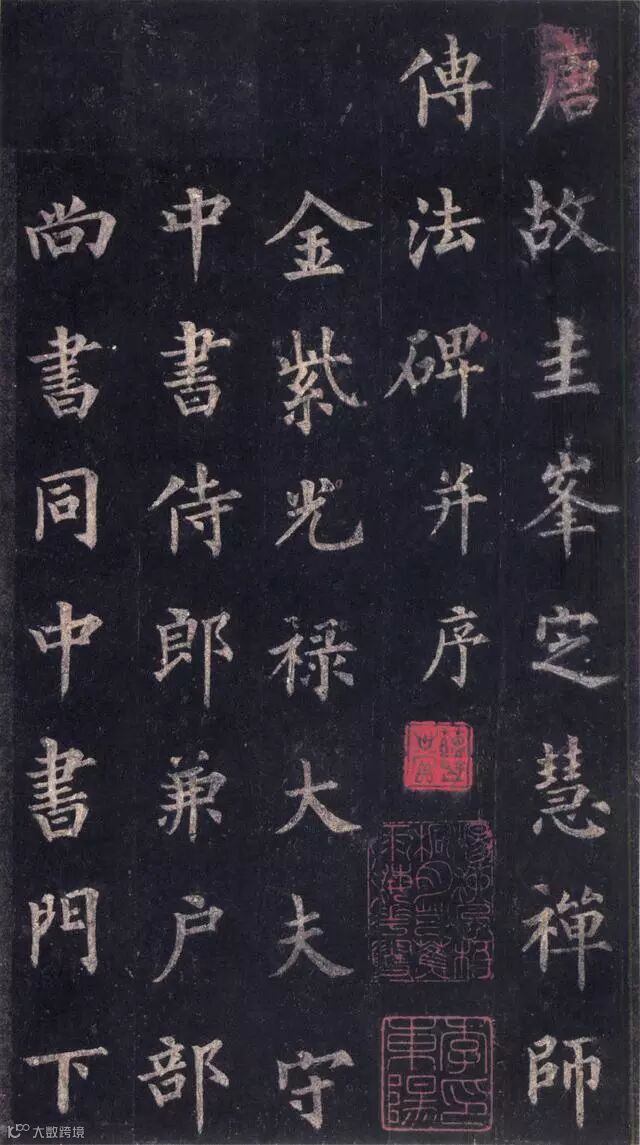 唐故圭峯定慧禪師
傳法碑并序
金紫光禄大夫守
中書侍郎兼户部
尚書同中書門下
大数跨境